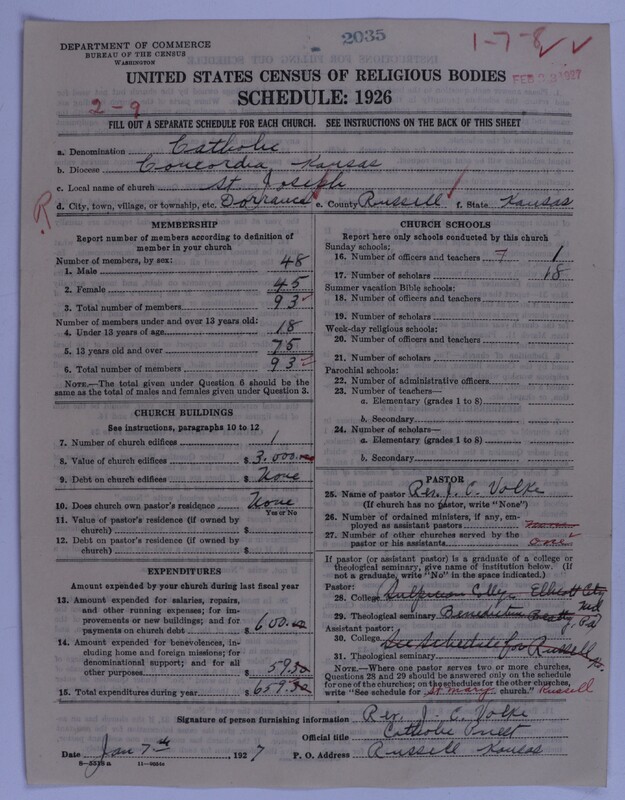 2035
1-7-8
DEPARTMENT OF COMMERCE
BUREAU OF THE CENSUS
WASHINGTON
UNITED STATES CENSUS OF RELIGIOUS BODIES
FEB 1927
SCHEDULE: 1926
2-9
FILL OUT A SEPARATE SCHEDULE FOR EACH CHURCH. SEE INSTRUCTIONS ON THE BACK OF THIS SHEET
a. Denomination Catholic
b. Diocese Concordia, Kansas
c. Local name of church St Joseph
d. City, town, village, or township, etc. Dorrance e. County Russell f. State Kansas
R
MEMBERSHIP
Report number of members according to definition of
member in your church
Number of members, by sex:
1. Male 48
2. Female 45
3. Total number of members 93
Number of members under and over 13 years old:
4. Under 13 years of age 18
5. 13 years old and over 75
6. Total number of members 93
NOTE.—The total given under Question 6 should be the
same as the total of males and females given under Question 3.
CHURCH BUILDINGS
See instructions, paragraphs 10 to 12
7. Number of church edifices 1
8. Value of church edifices $ 3.000.00
9. Debt on church edifices $ None
10. Does church own pastor's residence None
Yes or No
11. Value of pastor's residence (if owned by
church) $
12. Debt on pastor's residence (if owned by
church) $
EXPENDITURES
Amount expended by your church during last fiscal year
13. Amount expended for salaries, repairs,
and other running expenses; for im-
provements or new buildings; and for
payments on church debt $ 600.00
14. Amount expended for benevolences, in-
cluding home and foreign missions; for
denominational support; and for all
other purposes $ 59.30
15. Total expenditures during year $ 659.30
CHURCH SCHOOLS
Report here only schools conducted by this church
Sunday schools:
16. Number of officers and teachers 1
17. Number of scholars 18
Summer vacation Bible schools:
18. Number of officers and teachers
19. Number of scholars
Week-day religious schools:
20. Number of officers and teachers
21. Number of scholars
Parochial schools:
22. Number of administrative officers
23. Number of teachers—
a. Elementary (grades 1 to 8)
b. Secondary
24. Number of scholars—
a. Elementary (grades 1 to 8)
b. Secondary
PASTOR
25. Name of pastor Rev. J. C. Volke
(If church has no pastor, write "None")
26. Number of ordained ministers, if any, em-
ployed as assistant pastors
27. Number of other churches served by the
pastor or his assistants one
If pastor (or assistant pastor) is a graduate of a college or
theological seminary, give name of institution below. (If
not a graduate, write "No" in the space indicated.)
Pastor:
28. College Ellicott City, Md
29. Theological seminary Benedictin Beatty, Pa
Assistant pastor:
30. College See Schedule for Russell
31. Theological seminary
NOTE.—Where one pastor serves two or more churches,
Questions 28 and 29 should be answered only on the schedule
for one of the churches; on the schedules for the other churches,
write "See schedule for St Mary's church." Russell
Signature of person furnishing information Rev. J. C. Volke
Official title Catholic Priest
Date Jan 7th, 1927 P. O. Address Russell Kansas
8-5518a 11-9024a